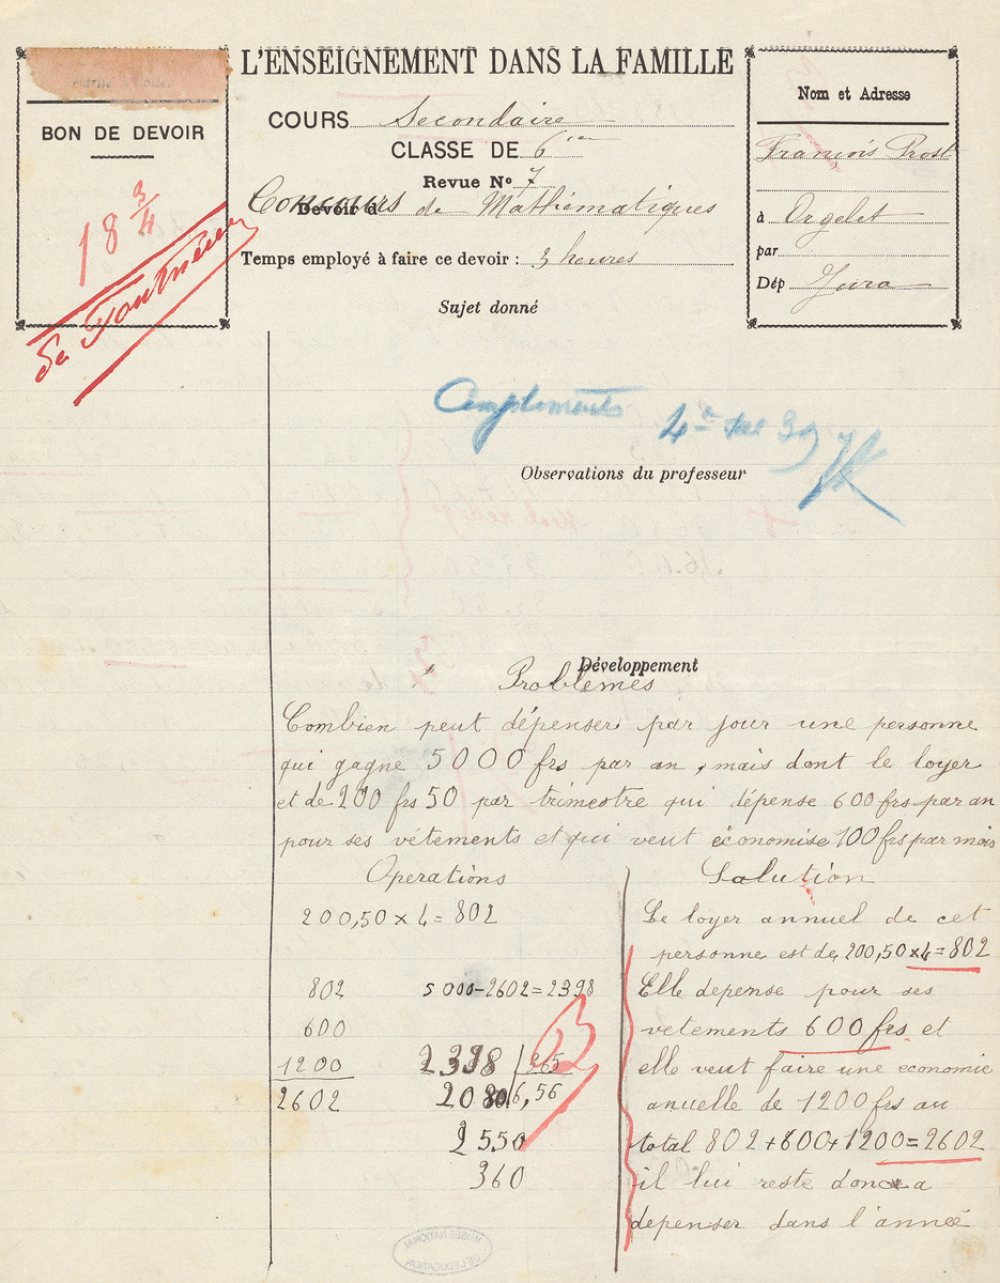 L'ENSEIGNEMENT DANS LA FAMILLE
BON DE DEVOIR
18 3/4
COURS Secondaire
CLASSE DE 6
Revue No 7
Devoir d
Concours de Mathématiques
Temps employé à faire ce devoir : 3 heures
Nom et Adresse
François Prost
à Orgelet
par
Dép Jura
Sujet donné
Compliments
Observations du professeur
Développement
Problèmes
Combien peut dépenser par jour une personne
qui gagne 5000 frs par an, mais dont le loyer
et de 200 frs 50 par trimestre qui dépense 600 frs par an
pour ses vêtements et qui veut économise 100 frs par mois
Operations
200,50 x 4 = 802
802 5000-2602=2398
600
1200 2398 365
2602 2080 6,56
2550
360
3
Salution
Le loyer annuel de cet
personne est de, 200,50x4=802
Elle depense pour ses
vetements 600 frs et
elle veut faire une economie
anuelle de 1200 frs au
total 802+600+1200=2602
il lui reste donc a
depenser dans l'anneé
MUSÉE NATIONAL
DE L'ÉDUCATION